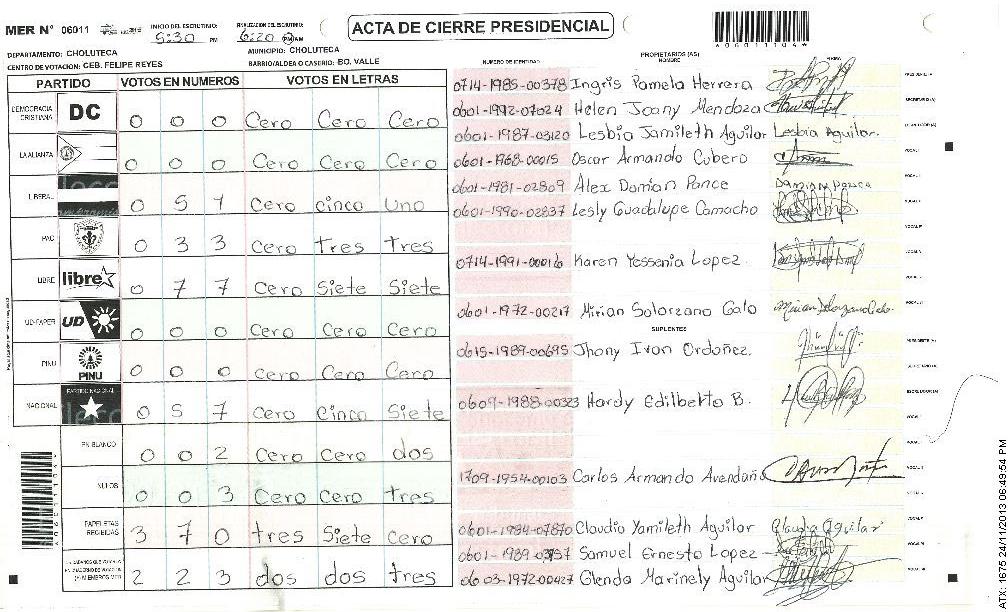 MER N° 06011
INICIO DEL ESCRUTINIO:
5:30 PM
FINALIZACION DEL ESCRUTINIO:
6:20 PM AM
ACTA DE CIERRE PRESIDENCIAL
DEPARTAMENTO: CHOLUTECA
MUNICIPIO: CHOLUTECA
CENTRO DE VOTACION: CEB. FELIPE REYES
BARRIO/ALDEA O CASERIO: BO. VALLE
PARTIDO VOTOS EN NUMEROS VOTOS EN LETRAS
DEMOCRACIA CRISTIANA DC 0 0 0 Cero Cero Cero
LA ALIANZA 0 0 0 Cero Cero Cero
LIBERAL 0 5 1 Cero cinco uno
PAC 0 3 3 Cero tres tres
LIBRE libre 0 7 7 Cero Siete Siete
UD-FAPER UD 0 0 0 Cero Cero Cero
PINU PINU 0 0 0 Cero Cero Cero
NACIONAL PARTIDO NACIONAL 0 5 7 Cero Cinco Siete
EN BLANCO 0 0 2 Cero Cero dos
NULOS 0 0 3 Cero Cero tres
PAPELETAS RECIBIDAS 3 7 0 tres Siete Cero
2 2 3 dos dos tres
NUMERO DE IDENTIDAD
PROPIETARIOS (AS)
NOMBRE
FIRMA
0714-1985-00378 Ingris Pamela Herrera
0601-1992-07024 Helen Joany Mendoza
0601-1987-03120 Lesbia Jamileth Aguilar Lesbia Aguilar.
0601-1968-00015 Oscar Armando Cubero
0601-1981-02809 Alex Damian Ponce Damian Ponce
0601-1990-02837 Lesly Guadalupe Camacho
0714-1991-00016 Karen Yessenia Lopez
0601-1972-00217 Mirian Solorzano Galo
SUPLENTES
0615-1989-00695 Jhony Ivan Ordoñez.
0609-1988-00323 Hardy Edilberto B.
1709-1954-00103 Carlos Armando Avendaño
0601-1984-07870 Claudia Yamileth Aguilar Claudia Aguilar
Samuel Ernesto Lopez
0603-1972-00427 Glenda Marinely Aguilar
ATX: 1675 24/11/2013 06:49:54 PM